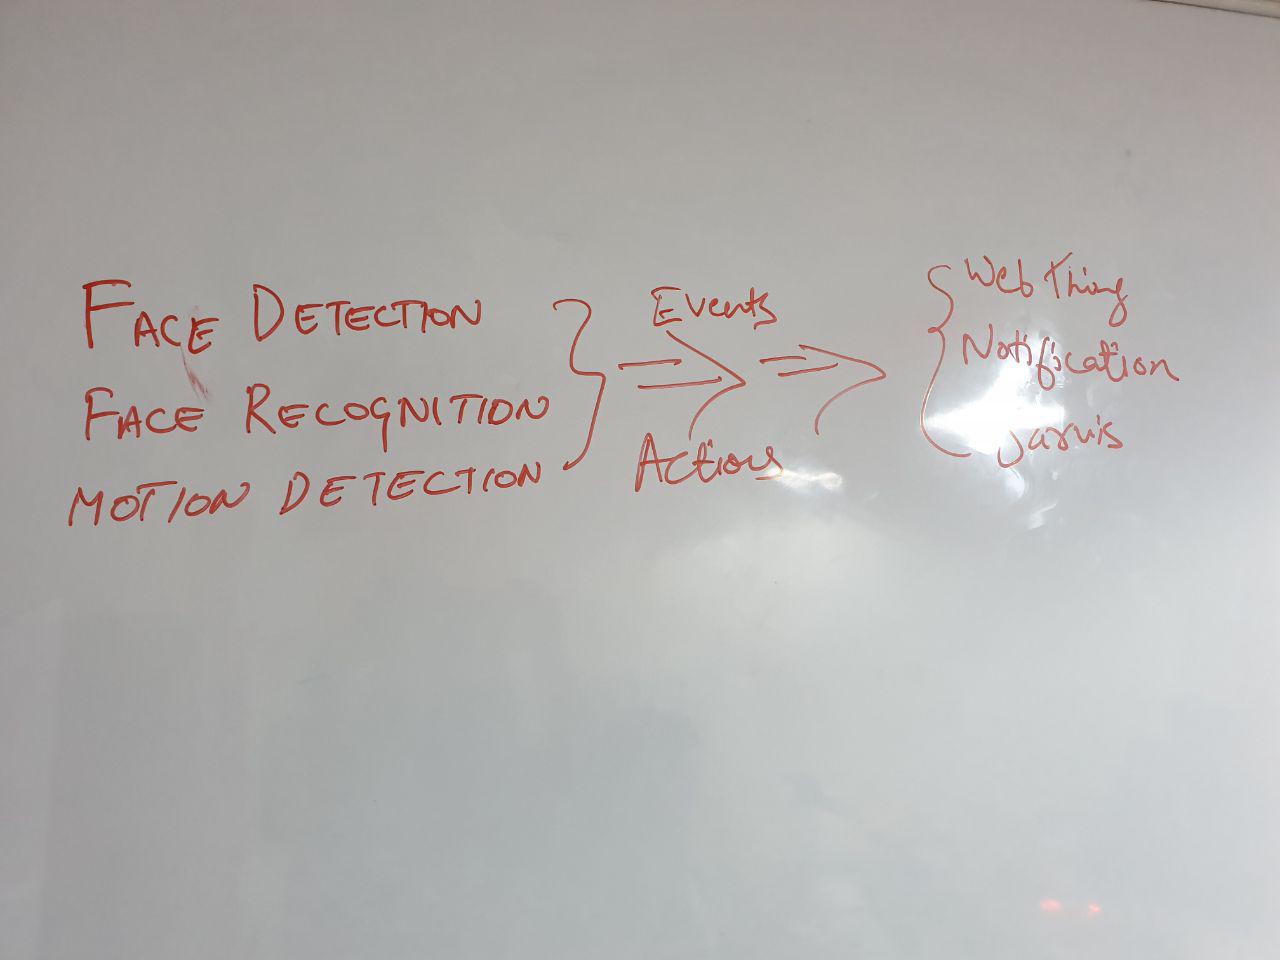 FACE DETECTION
FACE RECOGNITION
MOTION DETECTION
Events
Actions
Web Thing
Notification
Jarvis